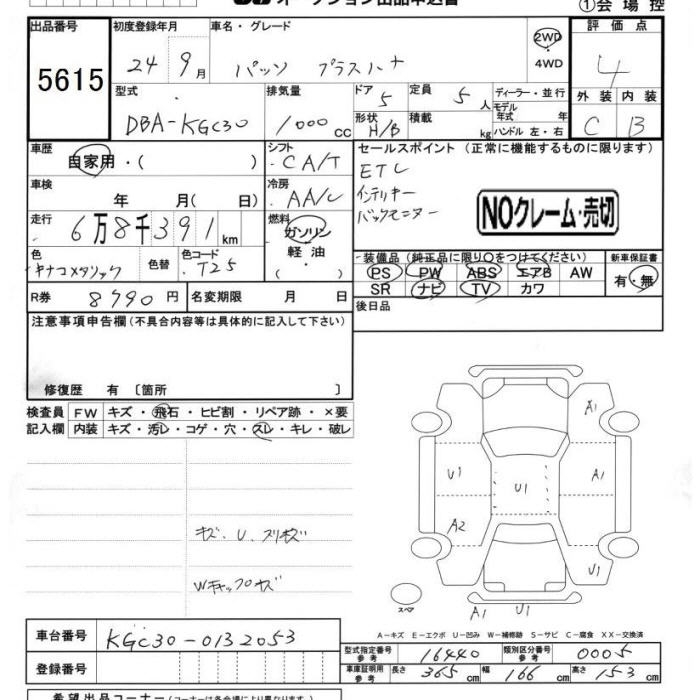 オークション出品申込書
①会場控
出品番号 初度登録年月 車名・グレード 評価点
5615
24年 9月 パッソ プラスハナ 2WD・4WD 4
型式 排気量 ドア 5 定員 5人 ディーラー・並行 外装 内装
DBA-KGC30 1000cc 形状 H/B 積載 kg モデル年式 年 ハンドル 左・右 C B
車歴 自家用・( ) シフト CA/T セールスポイント (正常に機能するものに限ります)
ETC
インテリキー
バックモニター
NOクレーム・売切
車検 年 月( 日) 冷房 AA/C
走行 6万8千391km 燃料 ガソリン・軽油・( )
色 キナコメタリック 色替 色コード T25
装備品 (純正品に限り○をつけてください) 新車保証書
PS PW ABS エアB AW 有・無
SR ナビ TV カワ
R券 8790円 名変期限 月 日
後日品
注意事項申告欄(不具合内容等は具体的に記入して下さい)
修復歴 有 〔箇所 〕
検査員 FW キズ・飛石・ヒビ割・リペア跡・×要
記入欄 内装 キズ・汚レ・コゲ・穴・スレ・キレ・破レ
キズ、U、スリキズ
Wキャップキズ
A1
U1 U1 A1
A2
U1
スペア A1 U1
A-キズ E-エクボ U-凹み W-補修跡 S-サビ C-腐食 XX-交換済
車台番号 KGC30-0132053
登録番号
型式指定番号 参考 16440 類別区分番号 参考 0005
車庫証明用 参考 長さ 365cm 幅 166cm 高さ 153cm
希望出品コーナー(コーナーは各会場により異なります)